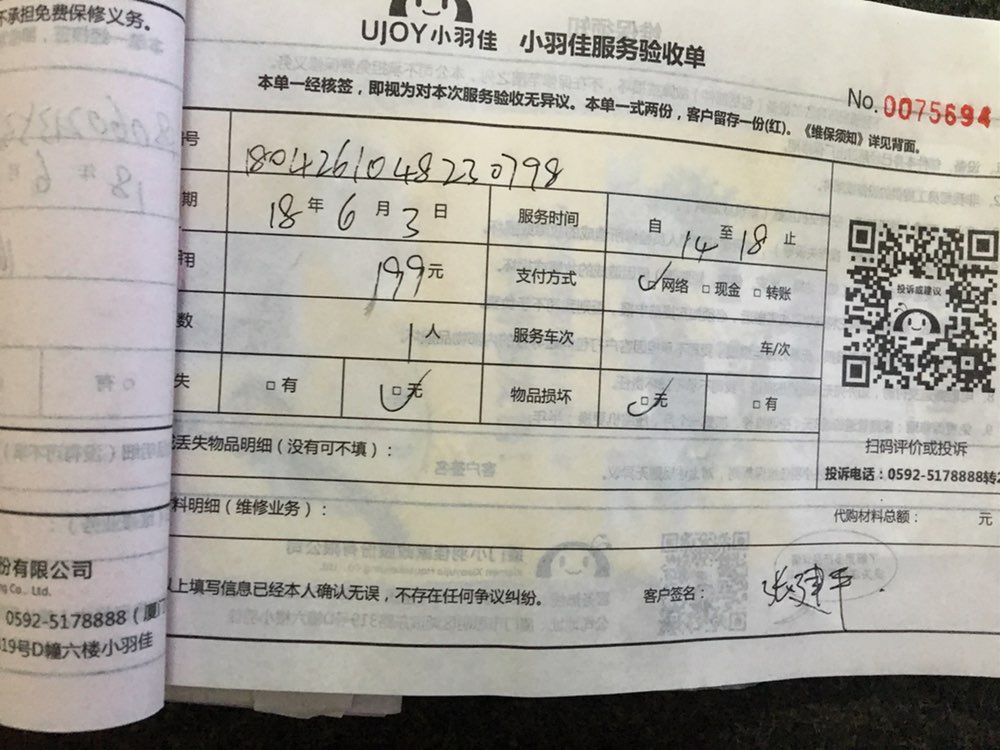 不承担免费保修义务。
UJOY小羽佳 小羽佳服务验收单
本单一经核签，即视为对本次服务验收无异议。本单一式两份，客户留存一份(红)。《维保须知》详见背面。
No. 0075694
号 18014261048230798
期 18 年 6 月 3 日 服务时间 自 14 至 18 止
用 199 元 支付方式 网络 □ 现金 □ 转账
数 1 人 服务车次 车/次
失 □ 有 □ 无 物品损坏 □ 无 □ 有
投诉或建议
扫码评价或投诉
投诉电话：0592-5178888转2
丢失物品明细（没有可不填）：
料明细（维修业务）： 代购材料总额： 元
上填写信息已经本人确认无误，不存在任何争议纠纷。 客户签名： 张建平
份有限公司
ng Co., Ltd.
0592-5178888（厦门
319号D幢六楼小羽佳